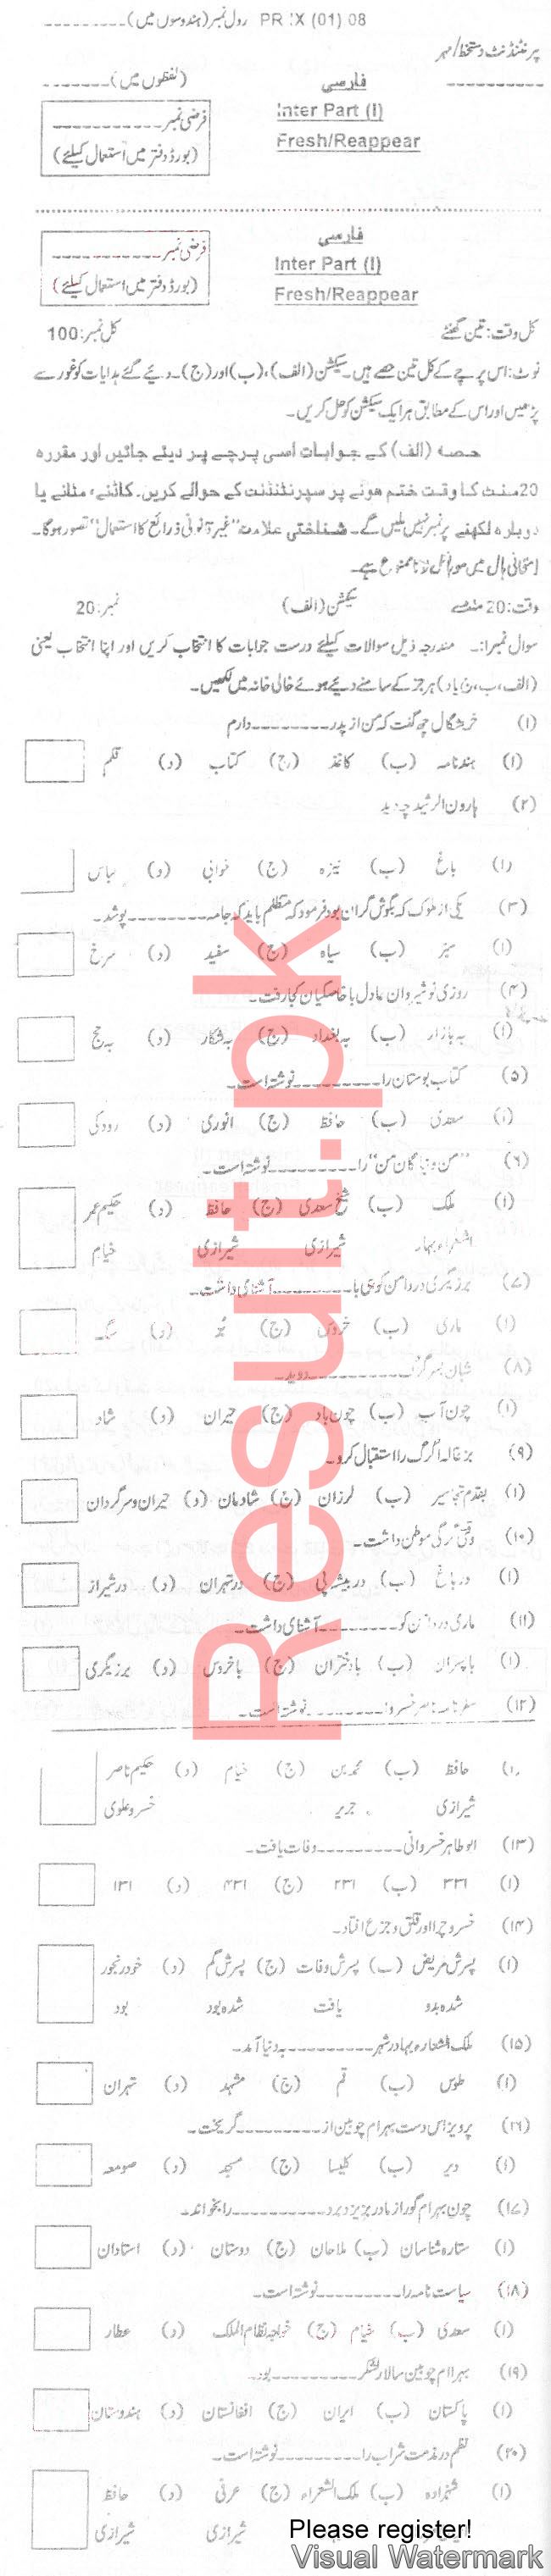 PR IX (01) 08 رول نمبر (ہندسوں میں)---------
سپرنٹنڈنٹ دستخط/مہر
---------- فارسی (لفظوں میں)-------
Inter Part (I)
Fresh/Reappear
فرضی نمبر-----------
(بورڈ دفتر میں استعمال کیلئے)
فارسی
Inter Part (I)
Fresh/Reappear
فرضی نمبر-----------
(بورڈ دفتر میں استعمال کیلئے)
کل وقت: تین گھنٹے کل نمبر: 100
نوٹ: اس پرچے کے کل تین حصے ہیں۔ سیکشن (الف)، (ب) اور (ج)۔ دیئے گئے ہدایات کو غور سے
پڑھیں اور اس کے مطابق ہر ایک سیکشن کو حل کریں۔
حصہ (الف) کے جوابات اسی پرچے پر دیئے جائیں اور مقررہ
20 منٹ کا وقت ختم ہونے پر سپرنٹنڈنٹ کے حوالے کریں۔ کاٹنے، مٹانے یا
دوبارہ لکھنے پر نمبر نہیں ملیں گے۔ شناختی علامت "غیر قانونی ذرائع کا استعمال" تصور ہوگا۔
امتحانی ہال میں موبائل لانا ممنوع ہے۔
وقت: 20 منٹ سیکشن (الف) نمبر: 20
سوال نمبر1:۔ مندرجہ ذیل سوالات کیلئے درست جوابات کا انتخاب کریں اور اپنا انتخاب یعنی
(الف، ب، ج یا د) ہر جز کے سامنے دیئے ہوئے خالی خانہ میں لکھیں۔
(۱) خرشگال چہ گفت کہ من از پدر---------دارم
(ا) ہندنامہ (ب) کاغذ (ج) کتاب (د) قلم
(۲) ہارون الرشید چہ دید
(ا) باغ (ب) نیزہ (ج) خوابی (د) لباس
(۳) یکی از ملوک کہ بگوش گران بود فرمود کہ متظلم باید کہ جامہ---------پوشد۔
(ا) سبز (ب) سیاہ (ج) سفید (د) سرخ
(۴) روزی نوشیروان عادل با خاصگیان کجا رفت۔
(ا) بہ بازار (ب) بہ بغداد (ج) بہ شکار (د) بہ حج
(۵) کتاب بوستان را---------نوشتہ است۔
(ا) سعدی (ب) حافظ (ج) انوری (د) رودکی
(۶) "من و نیاگان من" را---------نوشتہ است۔
(ا) ملک (ب) شیخ سعدی (ج) حافظ (د) حکیم عمر
الشعراء بہار شیرازی شیرازی خیام
(۷) برزیگری در دامن کوہی با---------آشنای داشت۔
(ا) ماری (ب) خروس (ج) بز (د) سگ
(۸) شبان بسر گرگ---------دوید۔
(ا) چون آب (ب) چون باد (ج) حیران (د) شاد
(۹) بزغالہ گرگ را استقبال کرد۔
(ا) بقدم تجاسیر (ب) لرزان (ج) شادمان (د) حیران و سرگردان
(۱۰) وقتی گرگی موطن داشت۔
(ا) در باغ (ب) در بیشہ ای (ج) در تہران (د) در شیراز
(۱۱) ماری در دامن کوہ---------آشنای داشت۔
(ا) با پسران (ب) با دختران (ج) با خروس (د) برزیگری
(۱۲) سفرنامہ ناصر خسرو را---------نوشتہ است۔
(ا) حافظ (ب) محمد بن (ج) خیام (د) حکیم ناصر
شیرازی جریر خسرو علوی
(۱۳) ابو طاہر خسروانی---------وفات یافت۔
(ا) ۳۳۱ (ب) ۲۳۱ (ج) ۴۳۱ (د) ۱۳۱
(۱۴) خسرو چرا اور قلق و جزع افتاد۔
(ا) پسرش مریض (ب) پسرش وفات (ج) پسرش گم (د) خود رنجور
شدہ بدو یافت شدہ بود بود
(۱۵) ملک الشعراء بہار در شہر---------بہ دنیا آمد۔
(ا) طوس (ب) قم (ج) مشہد (د) تہران
(۱۶) پرویز اس دست بہرام چوبین از---------گریخت۔
(ا) دیر (ب) کلیسا (ج) مسجد (د) صومعہ
(۱۷) چون بہرام گور از مادر بزیزد یرد---------را بخواند۔
(ا) ستارہ شناسان (ب) ملاحان (ج) دوستان (د) استادان
(۱۸) سیاست نامہ را---------نوشتہ است۔
(ا) سعدی (ب) خیام (ج) خواجہ نظام الملک (د) عطار
(۱۹) بہرام چوبین سالار لشکر---------بود۔
(ا) پاکستان (ب) ایران (ج) افغانستان (د) ہندوستان
(۲۰) نظم در مذمت شراب را---------نوشتہ است۔
(ا) شہزادہ (ب) ملک الشعراء (ج) عرفی (د) حافظ
شیرازی شیرازی
Result.pk
Please register!
Visual Watermark